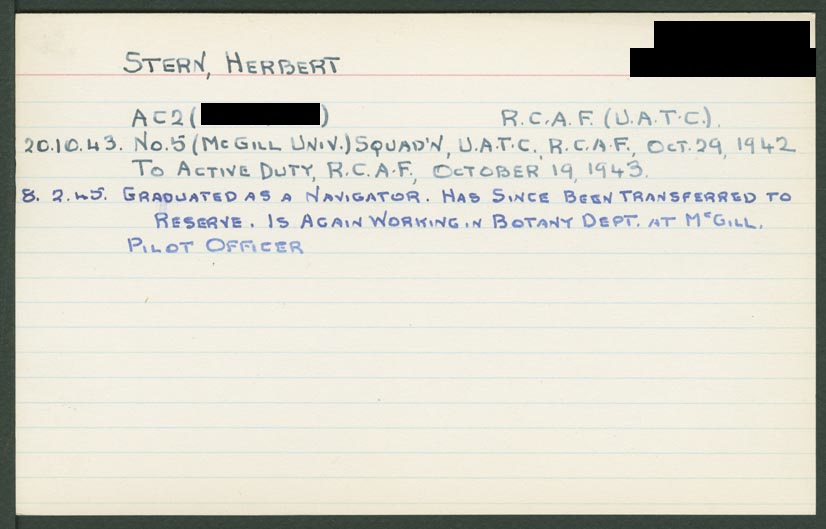 STERN, HERBERT
AC2 ( ) R.C.A.F. (U.A.T.C.).
20.10.43. NO. 5 (MCGILL UNIV.) SQUAD'N, U.A.T.C., R.C.A.F., OCT. 29, 1942
TO ACTIVE DUTY, R.C.A.F., OCTOBER 19, 1943.
8. 2.45. GRADUATED AS A NAVIGATOR. HAS SINCE BEEN TRANSFERRED TO
RESERVE. IS AGAIN WORKING IN BOTANY DEPT. AT MCGILL.
PILOT OFFICER